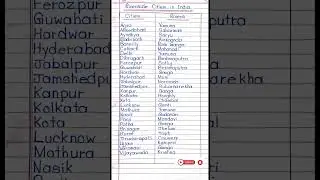 Riverside Cities in India
Cities Rivers
Agra Yamuna
Ahmedabad Sabarmati
Ayodhya Saryu
Badrinath Alaknanda
Bareilly Ram Ganga
Cuttack Mahanadi
Delhi Yamuna
Dibrugarh Brahmaputra
Ferozpur Satluj
Guwahati Brahmaputra
Hardwar Ganga
Hyderabad Musi
Jabalpur Narmada
Jamshedpur Subarnarekha
Kanpur Ganga
Kolkata Hooghly
Kota Chambal
Lucknow Gomti
Mathura Yamuna
Nasik Godavari
Panji Mandavi
Patna Ganga
Srinagar Jhelum
Surat Tapti
Cauvery
Ujjain
Varanasi Ganga
Vijayawada Krishna
Ferozpur
Guwahati
Hardwar
Hyderabad
Jabalpur
Jamshedp
Kanpur
Kolkata
Kota
Lucknow
Mathura
Nasik